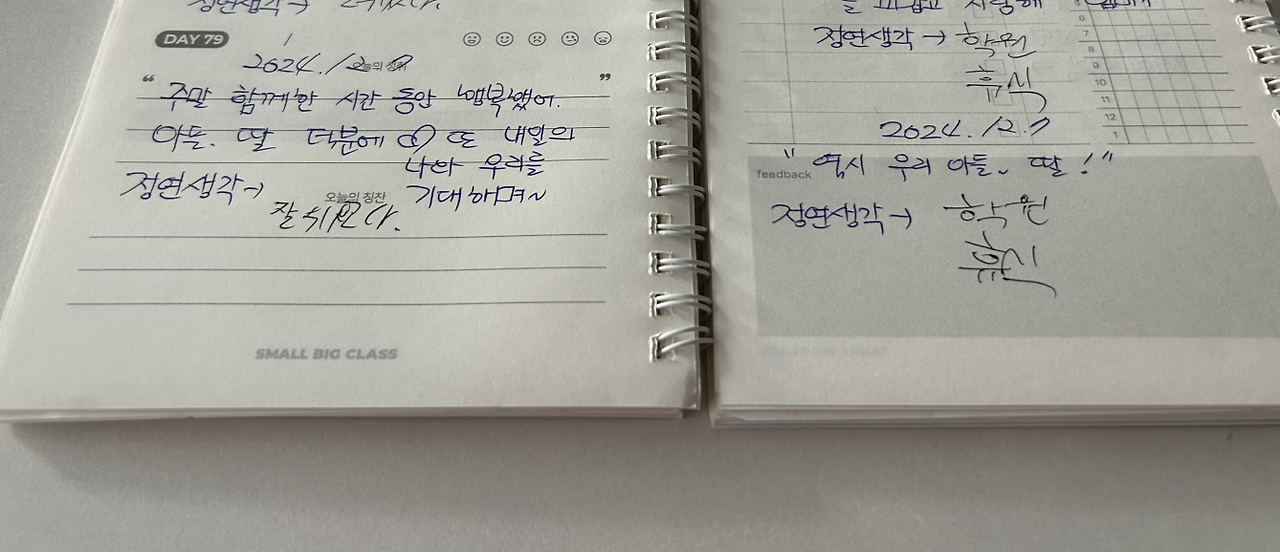 정연생각→
DAY 79
2024. 12.
오늘의 칭찬
“ 주말 함께한 시간 동안 행복했어. ”
아들. 딸 덕분에 또 내일의
나와 우리를
기대하며~
정연생각→
오늘의 칭찬
잘 쉬었다.
SMALL BIG CLASS
사랑해
정연생각→ 학원
휴식
6
7
8
9
10
11
12
1
2024. 12. 7
feedback
" 역시 우리 아들~ 딸! "
정연생각→ 학원
휴식